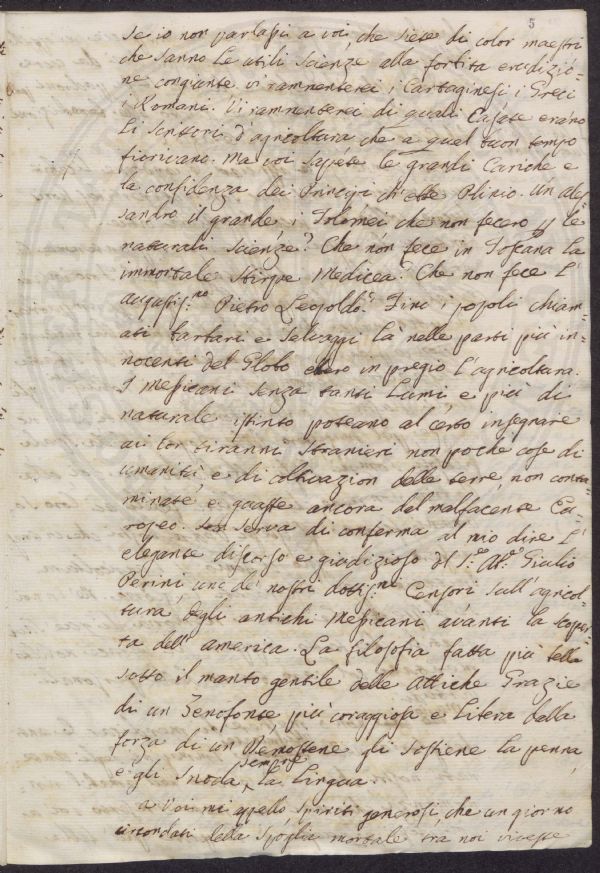 5
se io non parlassi a voi, che siete di color maestri
che sanno le utili scienze alla forbita erudizio-
ne congiunte vi rammenterei i Cartaginesi i Greci
i Romani. Vi rammenterei di quali Casate erano
li scrittori d'agricoltura che a quel buon tempo
fiorivano. Ma voi sapete le grandi Cariche e
la confidenza dei Principi ch'ebbe Plinio. Un Ales-
sandro il grande i Tolomei che non fecero p le
naturali scienze? Che non fece in Toscana la
immortale Stirpe Medicea? Che non fece l'
augustiss:mo Pietro Leopoldo? Fino i popoli chiam-
ati barbari e selvaggi là nelle parti più in-
nocenti del Globo ebero in pregio l'agricoltura.
I Messicani senza tanti lumi, e più di
naturale istinto poteano al certo insegnare
ai lor tiranni stranieri non poche cose di
umanità, e di coltivazion delle terre non conta-
minate, e guaste ancora del malfacente Eu-
ropeo. Serva di conferma al mio dire l'
elegante discorso e giudizioso del S.e Ab.e Giulio
Perini uno de' nostri dottiss:mi Censori sull'agricol-
tura degli antichi Messicani avanti la scoper-
ta dell'america. La filosofia fatta più bella
sotto il manto gentile delle Attiche Grazie
di un Zenofonte più coraggiosa e libera della
forza di un Demostene gli sostiene la penna,
e gli snoda sempre la lingua
a Voi mi appello, spiriti generosi, che un giorno
circondati della spoglia mortale tra noi viveste